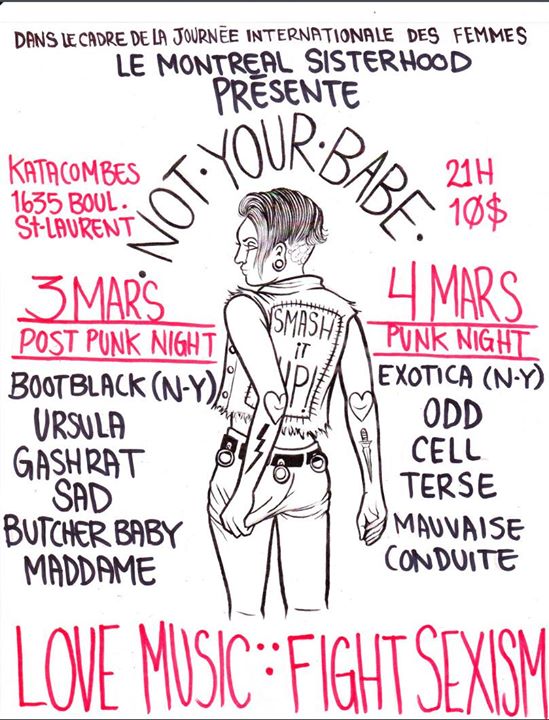 DANS LE CADRE DE LA JOURNÉE INTERNATIONALE DES FEMMES
LE MONTREAL SISTERHOOD
PRÉSENTE
NOT·YOUR·BABE.
KATACOMBES
1635 BOUL.
St-LAURENT
21H
10$
3 MARS
POST PUNK NIGHT
BOOTBLACK (N-Y)
URSULA
GASHRAT
SAD
BUTCHER BABY
MADDAME
SMASH
IT
UP!
4 MARS
PUNK NIGHT
EXOTICA (N-Y)
ODD
CELL
TERSE
MAUVAISE
CONDUITE
LOVE MUSIC :: FIGHT SEXISM